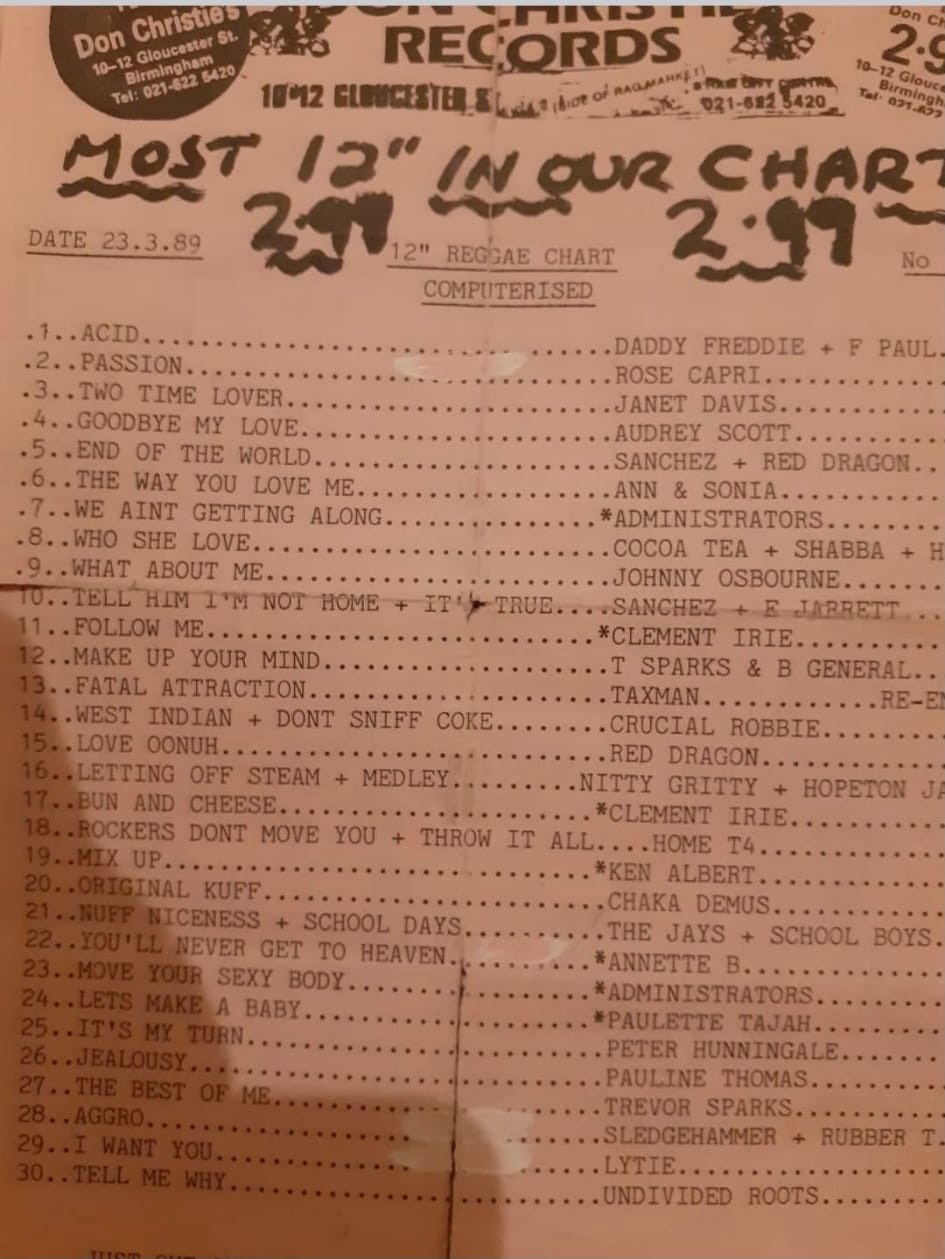 Don Christie's
10-12 Gloucester St.
Birmingham
Tel: 021-622 5420
DON CHRISTIE
RECORDS
10-12 GLOUCESTER S
(SIDE OF RAGMARKET)
021-622 5420
Don C
2.9
10-12 Glouce
Birmingh
Tel: 021-622
MOST 12" IN OUR CHART
2.99 2.99
DATE 23.3.89
12" REGGAE CHART
No
COMPUTERISED
.1..ACID..............................................DADDY FREDDIE + F PAUL.
.2..PASSION..........................................ROSE CAPRI............
.3..TWO TIME LOVER...............................JANET DAVIS...........
.4..GOODBYE MY LOVE..............................AUDREY SCOTT..........
.5..END OF THE WORLD.............................SANCHEZ + RED DRAGON..
.6..THE WAY YOU LOVE ME.........................ANN & SONIA...........
.7..WE AINT GETTING ALONG.................*ADMINISTRATORS........
.8..WHO SHE LOVE................................COCOA TEA + SHABBA + H
.9..WHAT ABOUT ME...............................JOHNNY OSBOURNE.......
10..TELL HIM I'M NOT HOME + IT'S TRUE.....SANCHEZ + E JARRETT...
11..FOLLOW ME..................................*CLEMENT IRIE..........
12..MAKE UP YOUR MIND.......................T SPARKS & B GENERAL..
13..FATAL ATTRACTION........................TAXMAN............RE-EN
14..WEST INDIAN + DONT SNIFF COKE........CRUCIAL ROBBIE........
15..LOVE OONUH................................RED DRAGON............
16..LETTING OFF STEAM + MEDLEY.........NITTY GRITTY + HOPETON JA
17..BUN AND CHEESE.........................*CLEMENT IRIE..........
18..ROCKERS DONT MOVE YOU + THROW IT ALL....HOME T4...............
19..MIX UP.....................................*KEN ALBERT............
20..ORIGINAL KUFF.............................CHAKA DEMUS...........
21..NUFF NICENESS + SCHOOL DAYS...........THE JAYS + SCHOOL BOYS.
22..YOU'LL NEVER GET TO HEAVEN...........*ANNETTE B.............
23..MOVE YOUR SEXY BODY...................*ADMINISTRATORS........
24..LETS MAKE A BABY.......................*PAULETTE TAJAH........
25..IT'S MY TURN..............................PETER HUNNINGALE......
26..JEALOUSY...................................PAULINE THOMAS........
27..THE BEST OF ME............................TREVOR SPARKS.........
28..AGGRO......................................SLEDGEHAMMER + RUBBER T.
29..I WANT YOU.................................LYTIE.................
30..TELL ME WHY...............................UNDIVIDED ROOTS.......